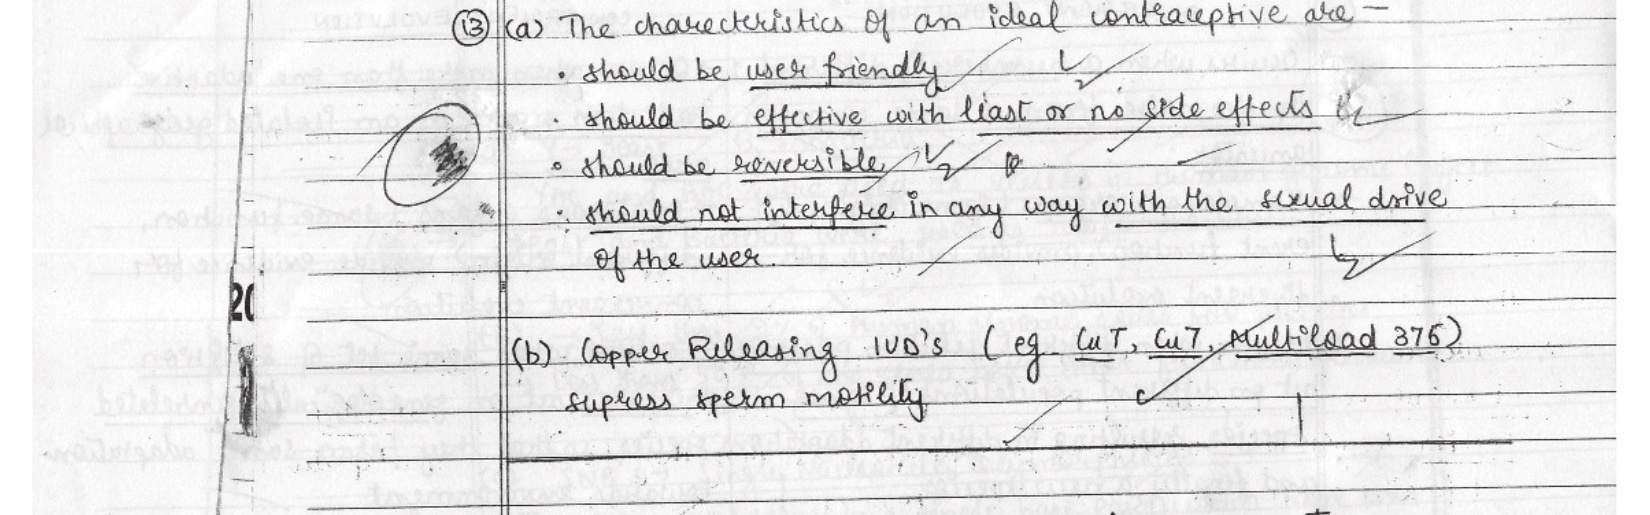 (13) (a) The charecteristics of an ideal contraceptive are —
• should be user friendly
• should be effective with least or no side effects
• should be reversible
• should not interfere in any way with the sexual drive
of the user
20
(b) Copper Releasing IUD's (eg. CuT, Cu7, Multiload 375)
supress sperm motility